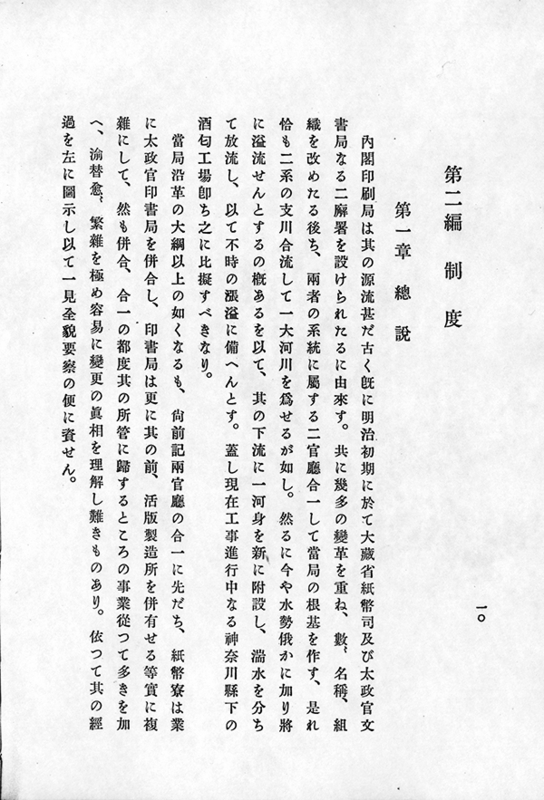 第二編　制度
第一章　總說
內閣印刷局は其の源流甚だ古く旣に明治初期に於て大藏省紙幣司及び太政官文
書局なる二廨署を設けられたるに由來す。共に幾多の變革を重ね、數〻名稱、組
織を改めたる後ち、兩者の系統に屬する二官廳合一して當局の根基を作す、是れ
恰も二系の支川合流して一大河川を爲せるが如し。然るに今や水勢俄かに加り將
に溢流せんとするの槪あるを以て、其の下流に一河身を新に附設し、湍水を分ち
て放流し、以て不時の漲溢に備へんとす。蓋し現在工事進行中なる神奈川縣下の
酒匂工場卽ち之に比擬すべきなり。
當局沿革の大綱以上の如くなるも、尙前記兩官廳の合一に先だち、紙幣寮は業
に太政官印書局を併合し、印書局は更に其の前、活版製造所を併有せる等實に複
雜にして、然も併合、合一の都度其の所管に歸するところの事業從つて多きを加
へ、渝替愈〻繁雜を極め容易に變更の眞相を理解し難きものあり。依つて其の經
過を左に圖示し以て一見全貌要察の便に資せん。
一〇